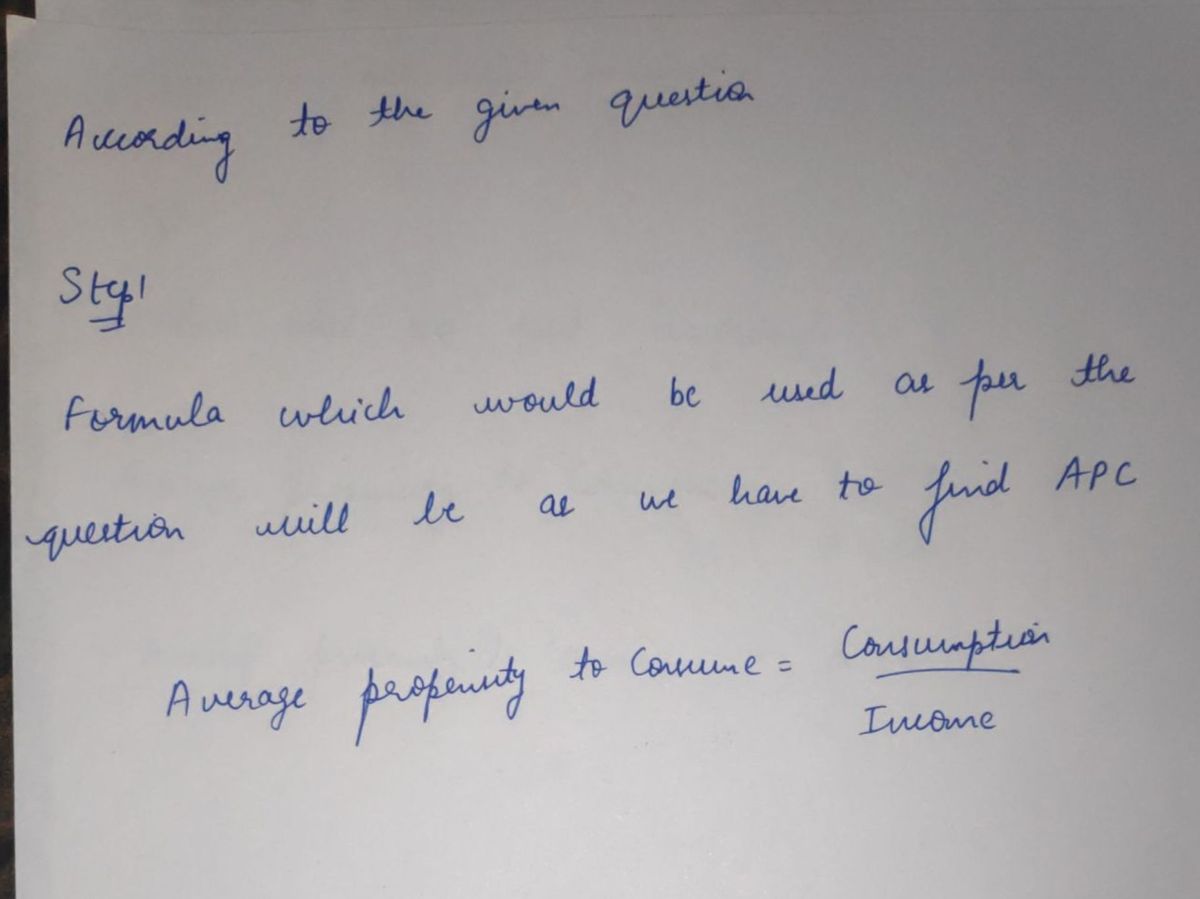 According to the given question
Step1
Formula which would be used as per the
question will be as we have to find APC
Average propensity to Consume = Consumption
Income